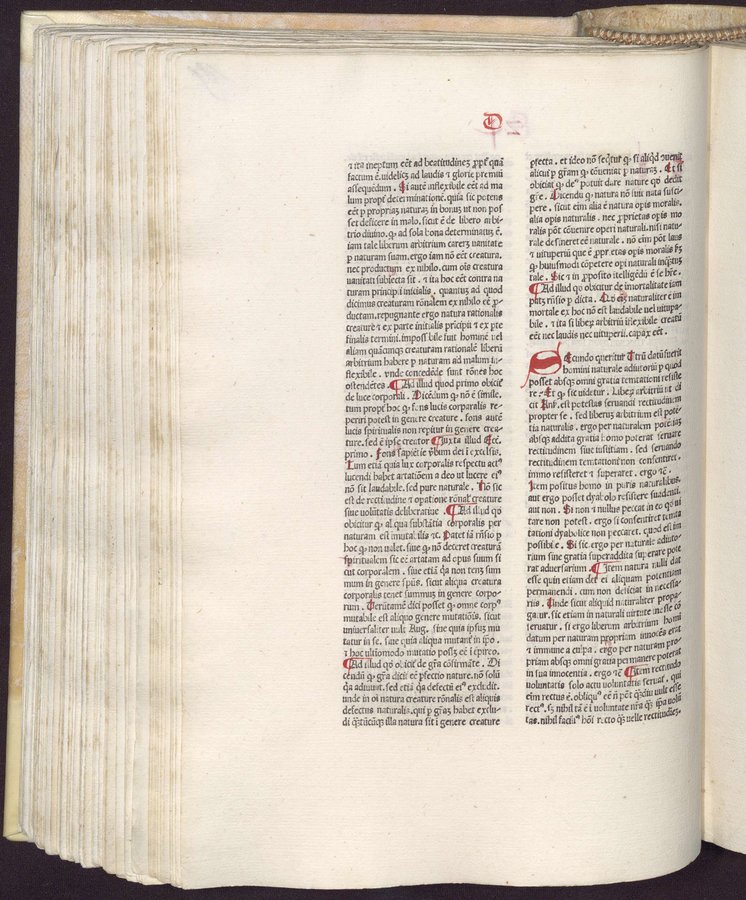 D
⁊ ita ineptum eēt ad beatitudineꝫ ꝓpt̕ quā
factum ē. videlicꝫ ad laudis ⁊ glorie premiū
assequēdum . Si autē inflexibile eēt ad ma
lum propt̕ determinationē. quia sic potens
eēt ꝑ propriaꝫ naturaꝫ in bonuꝫ ut non pos
set deficere in malo. sicut ē de libero arbi-
trio diuino. q̨ ad sola bona determinatuꝫ ē.
iam tale liberum arbitrium careꝫ uanitate
ꝑ naturam suam. ergo iam nō eēt creatura.
nec productum ex nihilo. cum oīs creatura
uanitati subiecta sit . ⁊ ita hoc eēt contra na
turam principii inicialis . quantuꝫ ad quod
dicimus creaturam rōnalem ex nihilo eē ꝓ-
ductam. repugnante ergo natura rationalis
creature ⁊ ex parte initialis p̄ncipii ⁊ ex pte
finalis termini. impossibile fuit hominē uel
aliam quācunqꝫ creaturam rationalē liberū
arbitrium habere ꝑ naturam ad malum in-
flexibile . vnde concedēde sunt rōnes hoc
ostendētes . Ad illud quod primo obicit̕
de luce corporali . Dicēdum q̨ nō ē simile.
tum propt̕ hoc q̨ fons lucis corporalis re-
periri potest in genere creature . fons autē
lucis spiritualis non repit̕ in genere crea-
ture. sed ē ipse creator Juxta illud Ecc̄.
primo . Fons sapiētie v̄bum dei ī excelsis.
Tum etiā quia lux corporalis respectu act̕
lucendi habet artatiōem a deo ut lucere ei⁹
nō sit laudabile. sed pure naturale . Nō sic
est de rectitudine ⁊ opatione rōnal̕ creature
siue volūtatis deliberatiue . Ad illud qd̕
obicitur q̨ aliqua substātia corporalis per
naturam est imutabilis ⁊c̄. Patet iā rn̄sio ꝑ
hoc q̨ non ualet. siue q̨ nō deceret creaturā
spiritualem sic eē artatam ad opus suum si
cut corporalem . siue etiā qa non tenꝫ sum
mum in genere sp̄us. sicut aliqua creatura
corporalis tenet summuꝫ in genere corpo-
rum . Verūtamē dici posset q̨ omne corp⁹
mutabile est aliquo genere mutatiōis. sicut
uniuersaliter vult Aug. siue quia ipsuꝫ mu
tatur in se. siue quia aliqua mutant̕ in ip̄o.
⁊ hoc ultiomodo mutatio posꝫ eē ī epireo.
Ad illud qd̕ obicit̕ de gr̄a cōfirmante . Di
cēdū q̨ gr̄a dicit̕ eē ꝑfectio nature. nō solū
qa adiuuat. sed etiā qa defectū ei⁹ excludit.
unde in oī natura creature rōnalis est aliquis
defectus naturalis. qui ꝑ gr̄aꝫ habet exclu-
di qntūcūqꝫ illa natura sit ī genere creature
ꝑfecta. et ideo nō seqt̕ur q̨ si aliqd̕ ꝯuenit
alicui ꝑ gr̄am q̨ cōueniat ꝑ naturaꝫ . Et si
obiciat̕ q̨ de⁹ potuit dare nature qd̕ dedit
gr̄e . Dicendū q̨ natura nō fuit nata susci-
pere . sicut eim alia ē natura opis moralis.
alia opis naturalis . nec ꝓprietas opis mo
ralis pōt cōuenire operi naturali. nisi natu-
rale desineret eē naturale . nō eim pōt laus
⁊ uituperiū que ē ꝓpr̄etas opis moralis ẜm
q̨ huiusmodi cōpetere opi naturali inqntuꝫ
tale . Sic ⁊ in ꝓposito itelligēdū ē se hr̄e.
Ad illud qd̕ obicitur de imortalitate iam
patꝫ rn̄sio ꝑ dicta . Qd̕ ei naturaliter ē im
mortale ex hoc nō est laudabile uel uitupa-
bile . ⁊ ita si libeꝝ arbitriū iflexibile creatū
eēt nec laudis nec uituperii. capax eēt .
Secundo queritur Utrū datū fuerit
homini naturale adiutoriū ꝑ quod
posset absqꝫ omni gratia temtationi resiste
re . Et q̨ sic videtur . Libeꝝ arbitriū ut di
cit Ans. est potestas seruandi rectitudinem
propter se . sed liberuꝫ arbitrium est potē-
tia naturalis . ergo per naturalem potētiaꝫ
absqꝫ addita gratia homo poterat seruare
rectitudinem siue iustitiam . sed seruando
rectitudinem temtationi non consentiret .
immo resisteret ⁊ superaret . ergo ⁊c̄ .
Item positus homo in puris naturalibus.
aut ergo posset dyabolo resistere suadenti.
aut non . Si non ⁊ nullus peccat in eo qd̕ ui
tare non potest . ergo si consentiret temta
tioni dyabolice non peccaret. quod est im
possibile . Si sic. ergo per naturale adiuto-
rium sine gratia superaddita superare pote
rat aduersarium . Item natura nulli dat
esse quin etiam det ei aliquam potentiam
permanendi . cum non deficiat in necessa-
riis . Unde sicut aliquid naturaliter propa-
gatur. sic etiam in naturali uirtute in esse cō
seruatur . si ergo liberum arbitrium homi
datum per naturam propriam innocēs erat
⁊ immune a culpa . ergo per naturam pro-
priam absqꝫ omni gratia permanere poterat
in sua innocentia . ergo ⁊c̄ Item rectitudo
voluntatis solo actu voluntatis seruat̕ . qui
eim rectus ē. obliqu⁹ eē n̄ pōt qm̄diu uule esse
rect⁹. sꝫ nihil tā ē ī voluntate nr̄a qꝫ ip̄a volū
tas. nihil facili⁹ homī recto qꝫ uelle rectitudieꝫ.